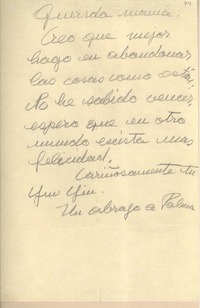 Querida mamá.
Creo que mejor
hago en abandonar
las cosas como están.
No he sabido vencer,
espero que en otro
mundo exista mas
felicidad.
Cariñosamente tu
Yin Yin.
Un abrazo a Palma